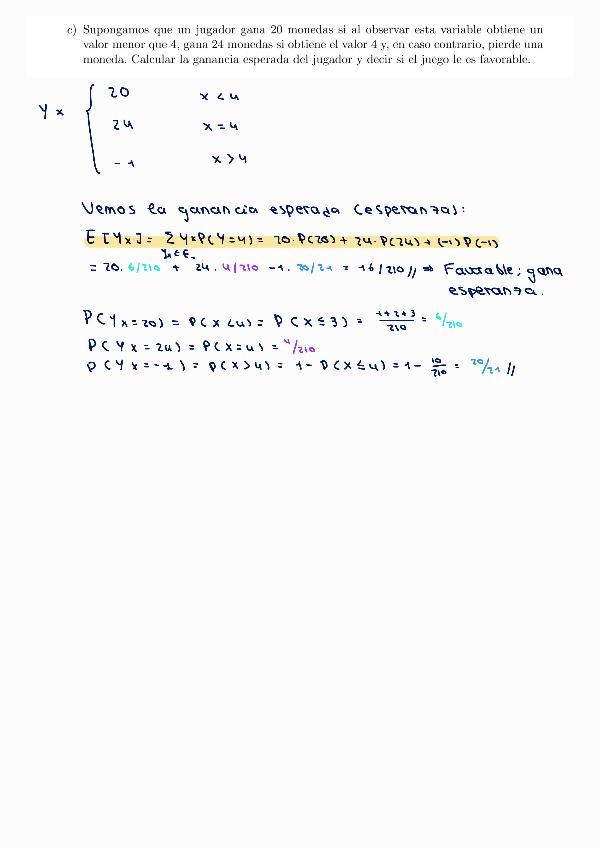 c) Supongamos que un jugador gana 20 monedas si al observar esta variable obtiene un
valor menor que 4, gana 24 monedas si obtiene el valor 4 y, en caso contrario, pierde una
moneda. Calcular la ganancia esperada del jugador y decir si el juego le es favorable.
Yx { 20 x < 4
24 x = 4
-1 x > 4
Vemos la ganancia esperada (esperanza):
E[Yx] = Σ Yx P(Y=y) = 20·P(20) + 24·P(24) + (-1) P(-1)
= 20· 6/210 + 24· 4/210 -1· 20/21 = 16/210 // ⇒ Favorable; gana
esperanza.
P(Yx=20) = P(X<4) = P(X≤3) = 1+2+3/210 = 6/210
P(Yx=24) = P(X=4) = 4/210
P(Yx=-1) = P(X>4) = 1-P(X≤4) = 1- 10/210 = 20/21 //